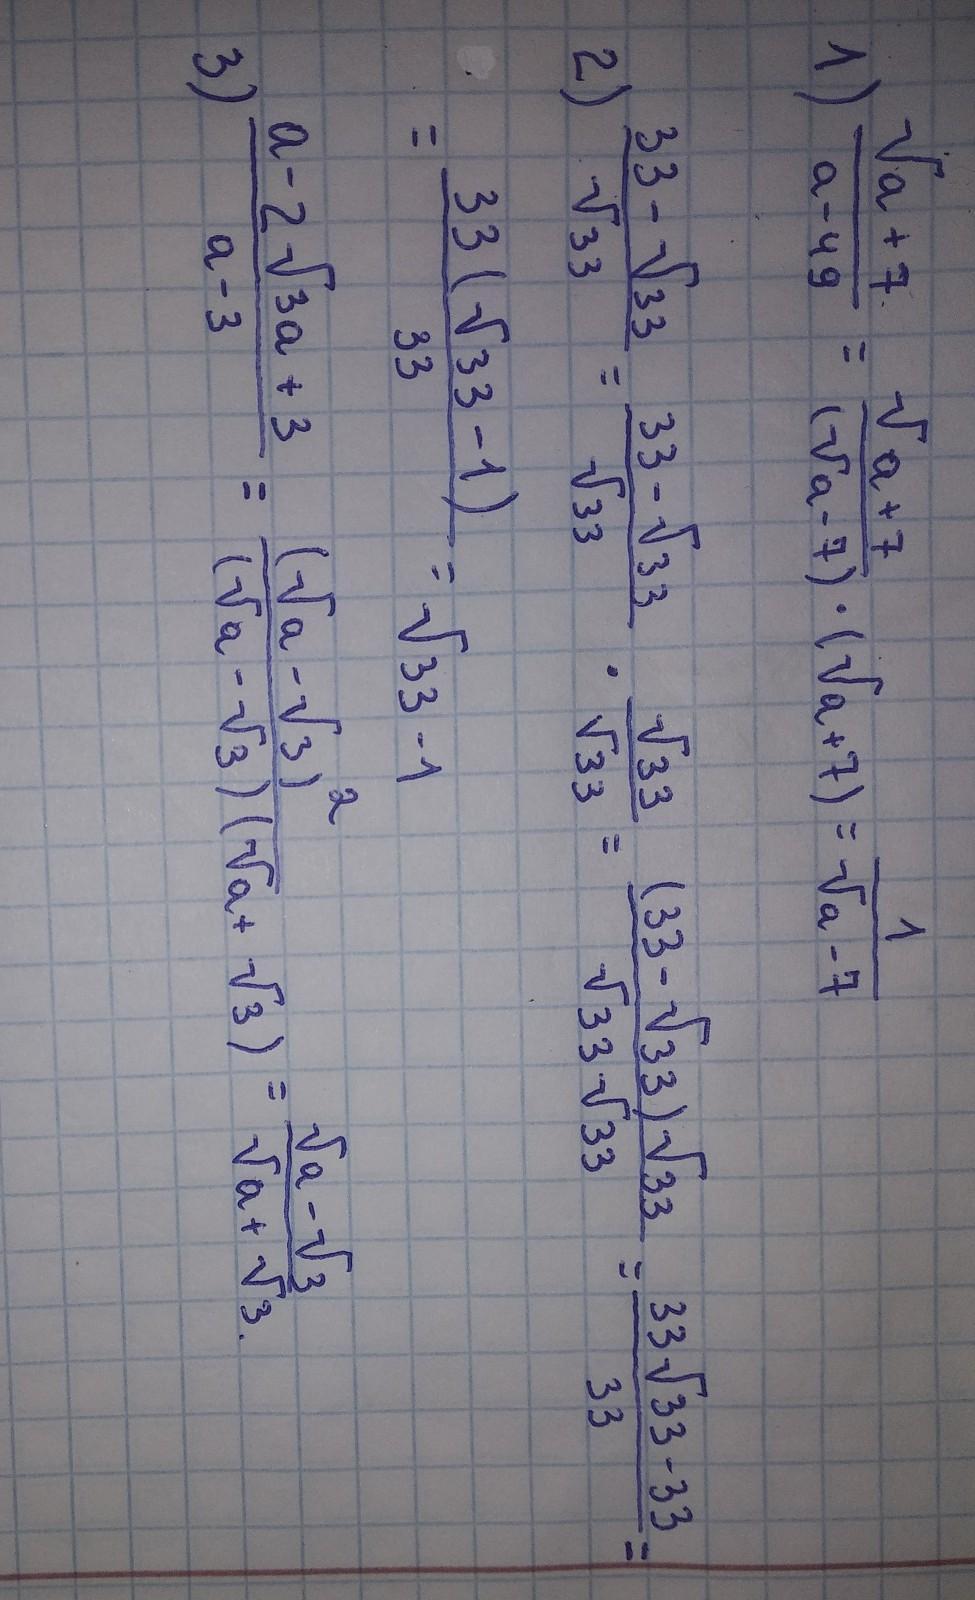 1) (√a + 7)/(a - 49) = (√a + 7)/((√a - 7) · (√a + 7)) = 1/(√a - 7)
2) (33 - √33)/√33 = (33 - √33)/√33 · √33/√33 = ((33 - √33)√33)/(√33 √33) = (33√33 - 33)/33 =
= (33(√33 - 1))/33 = √33 - 1
3) (a - 2√3a + 3)/(a - 3) = (√a - √3)²/((√a - √3)(√a + √3)) = (√a - √3)/(√a + √3).